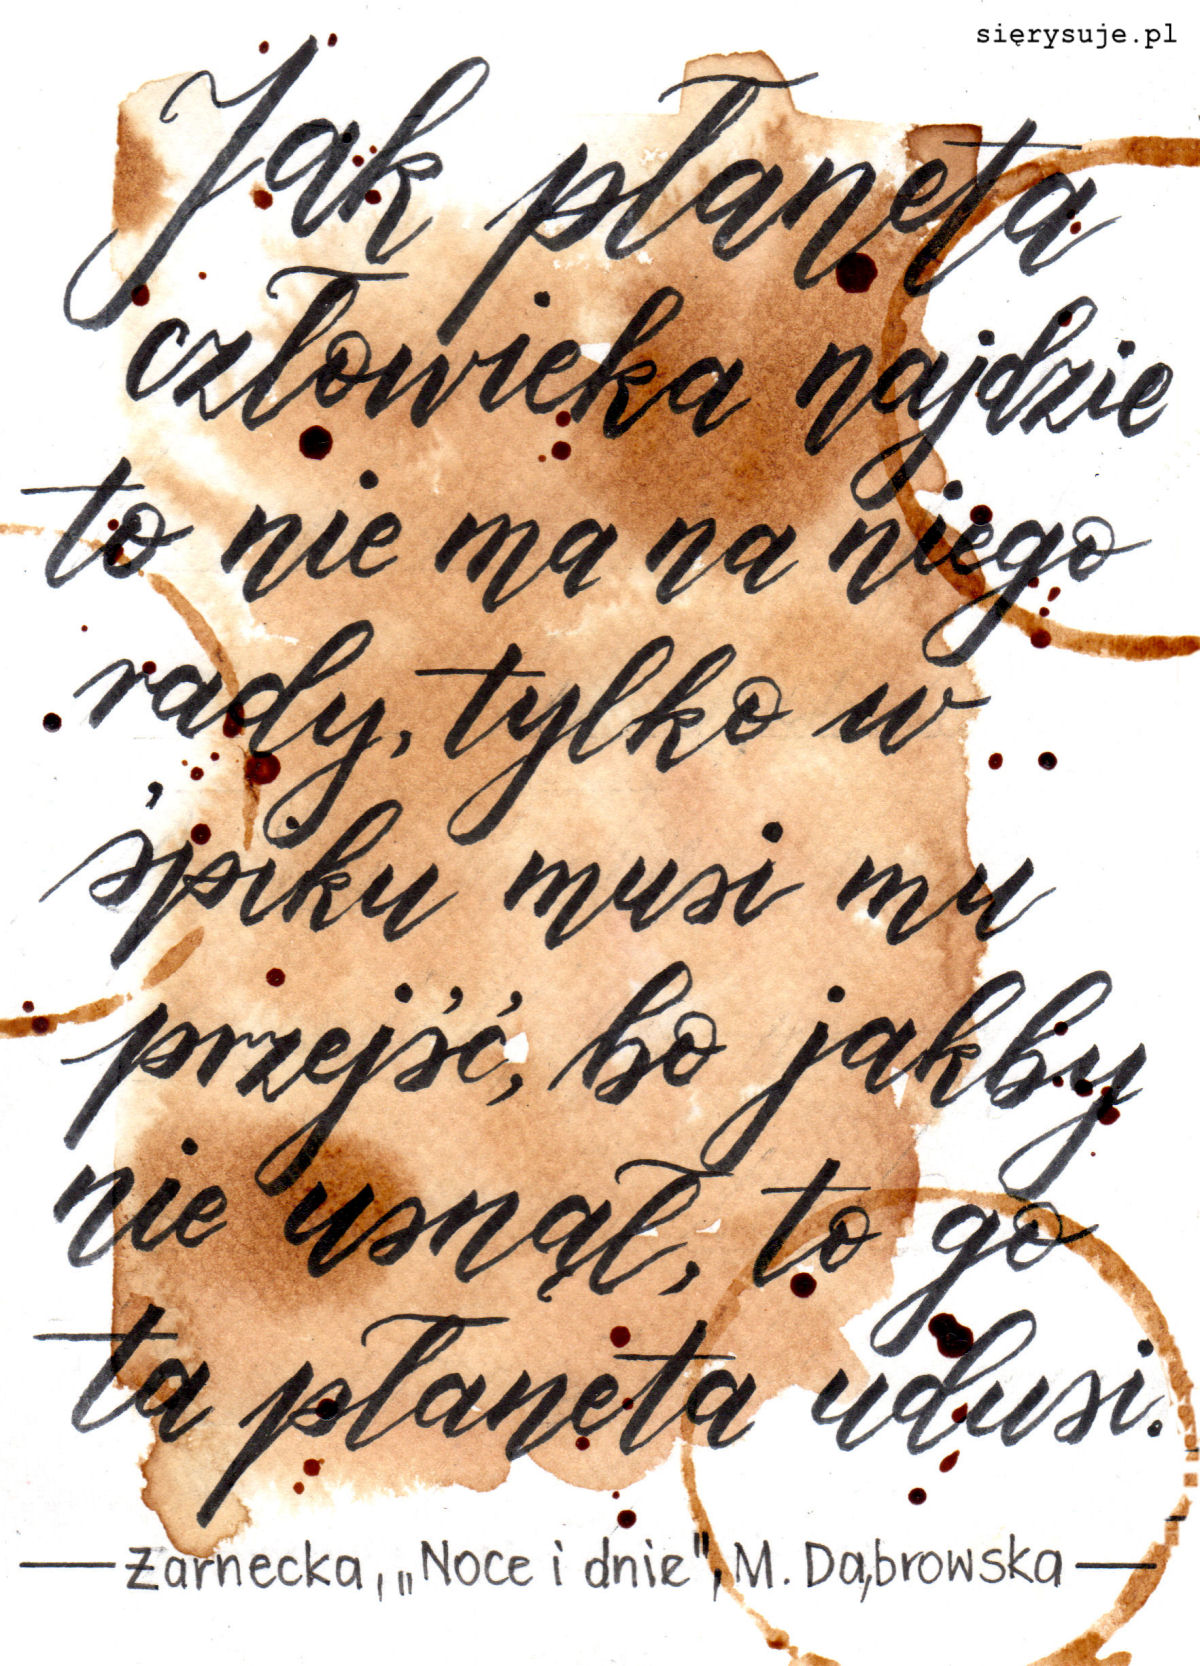 sięrysuje.pl
Jak płaneta
człowieka najdzie
to nie ma na niego
rady, tylko w
śpiku musi mu
przejść, bo jakby
nie usnął, to go
ta płaneta udusi.
Żarnecka, „Noce i dnie", M. Dąbrowska